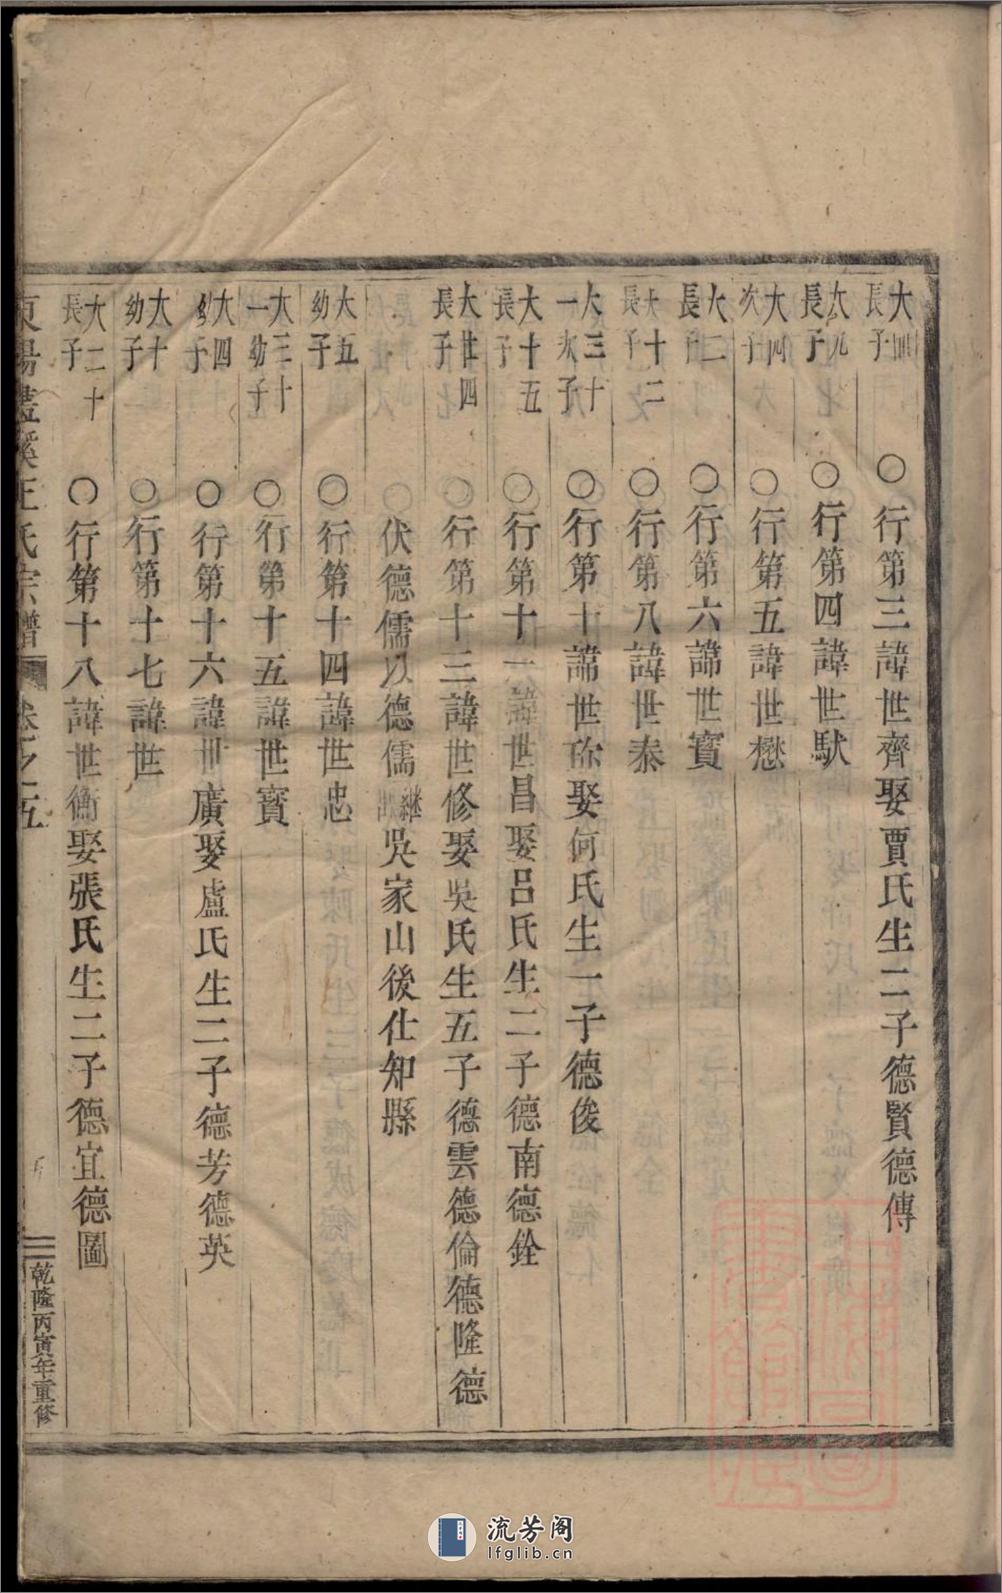 大四長子○行第三諱世齊娶賈氏生二子德賢德傳
大九長子○行第四諱世馱
大四次子○行第五諱世懋
大二長子○行第六諱世寳
大十二長子○行第八諱世泰
大三十一次子○行第十諱世 娶何氏生一子德俊
大十五長子○行第十一諱世昌娶呂氏生二子德南德銓
大廿四長子○行第十三諱世修娶吳氏生五子德雲德倫德隆德
伏德儒以德儒継 吳家山後仕知縣
大五幼子○行第十四諱世忠
大三十一幼子○行第十五諱世寳
大四幼子○行第十六諱世廣娶盧氏生二子德芳德英
大十幼子○行第十七諱世
大二十長子○行第十八諱世衡娶張氏生二子德宜德圖
東陽 溪王氏宗譜 卷之五 乾隆丙寅年重修
流芳阁
lfglib.cn